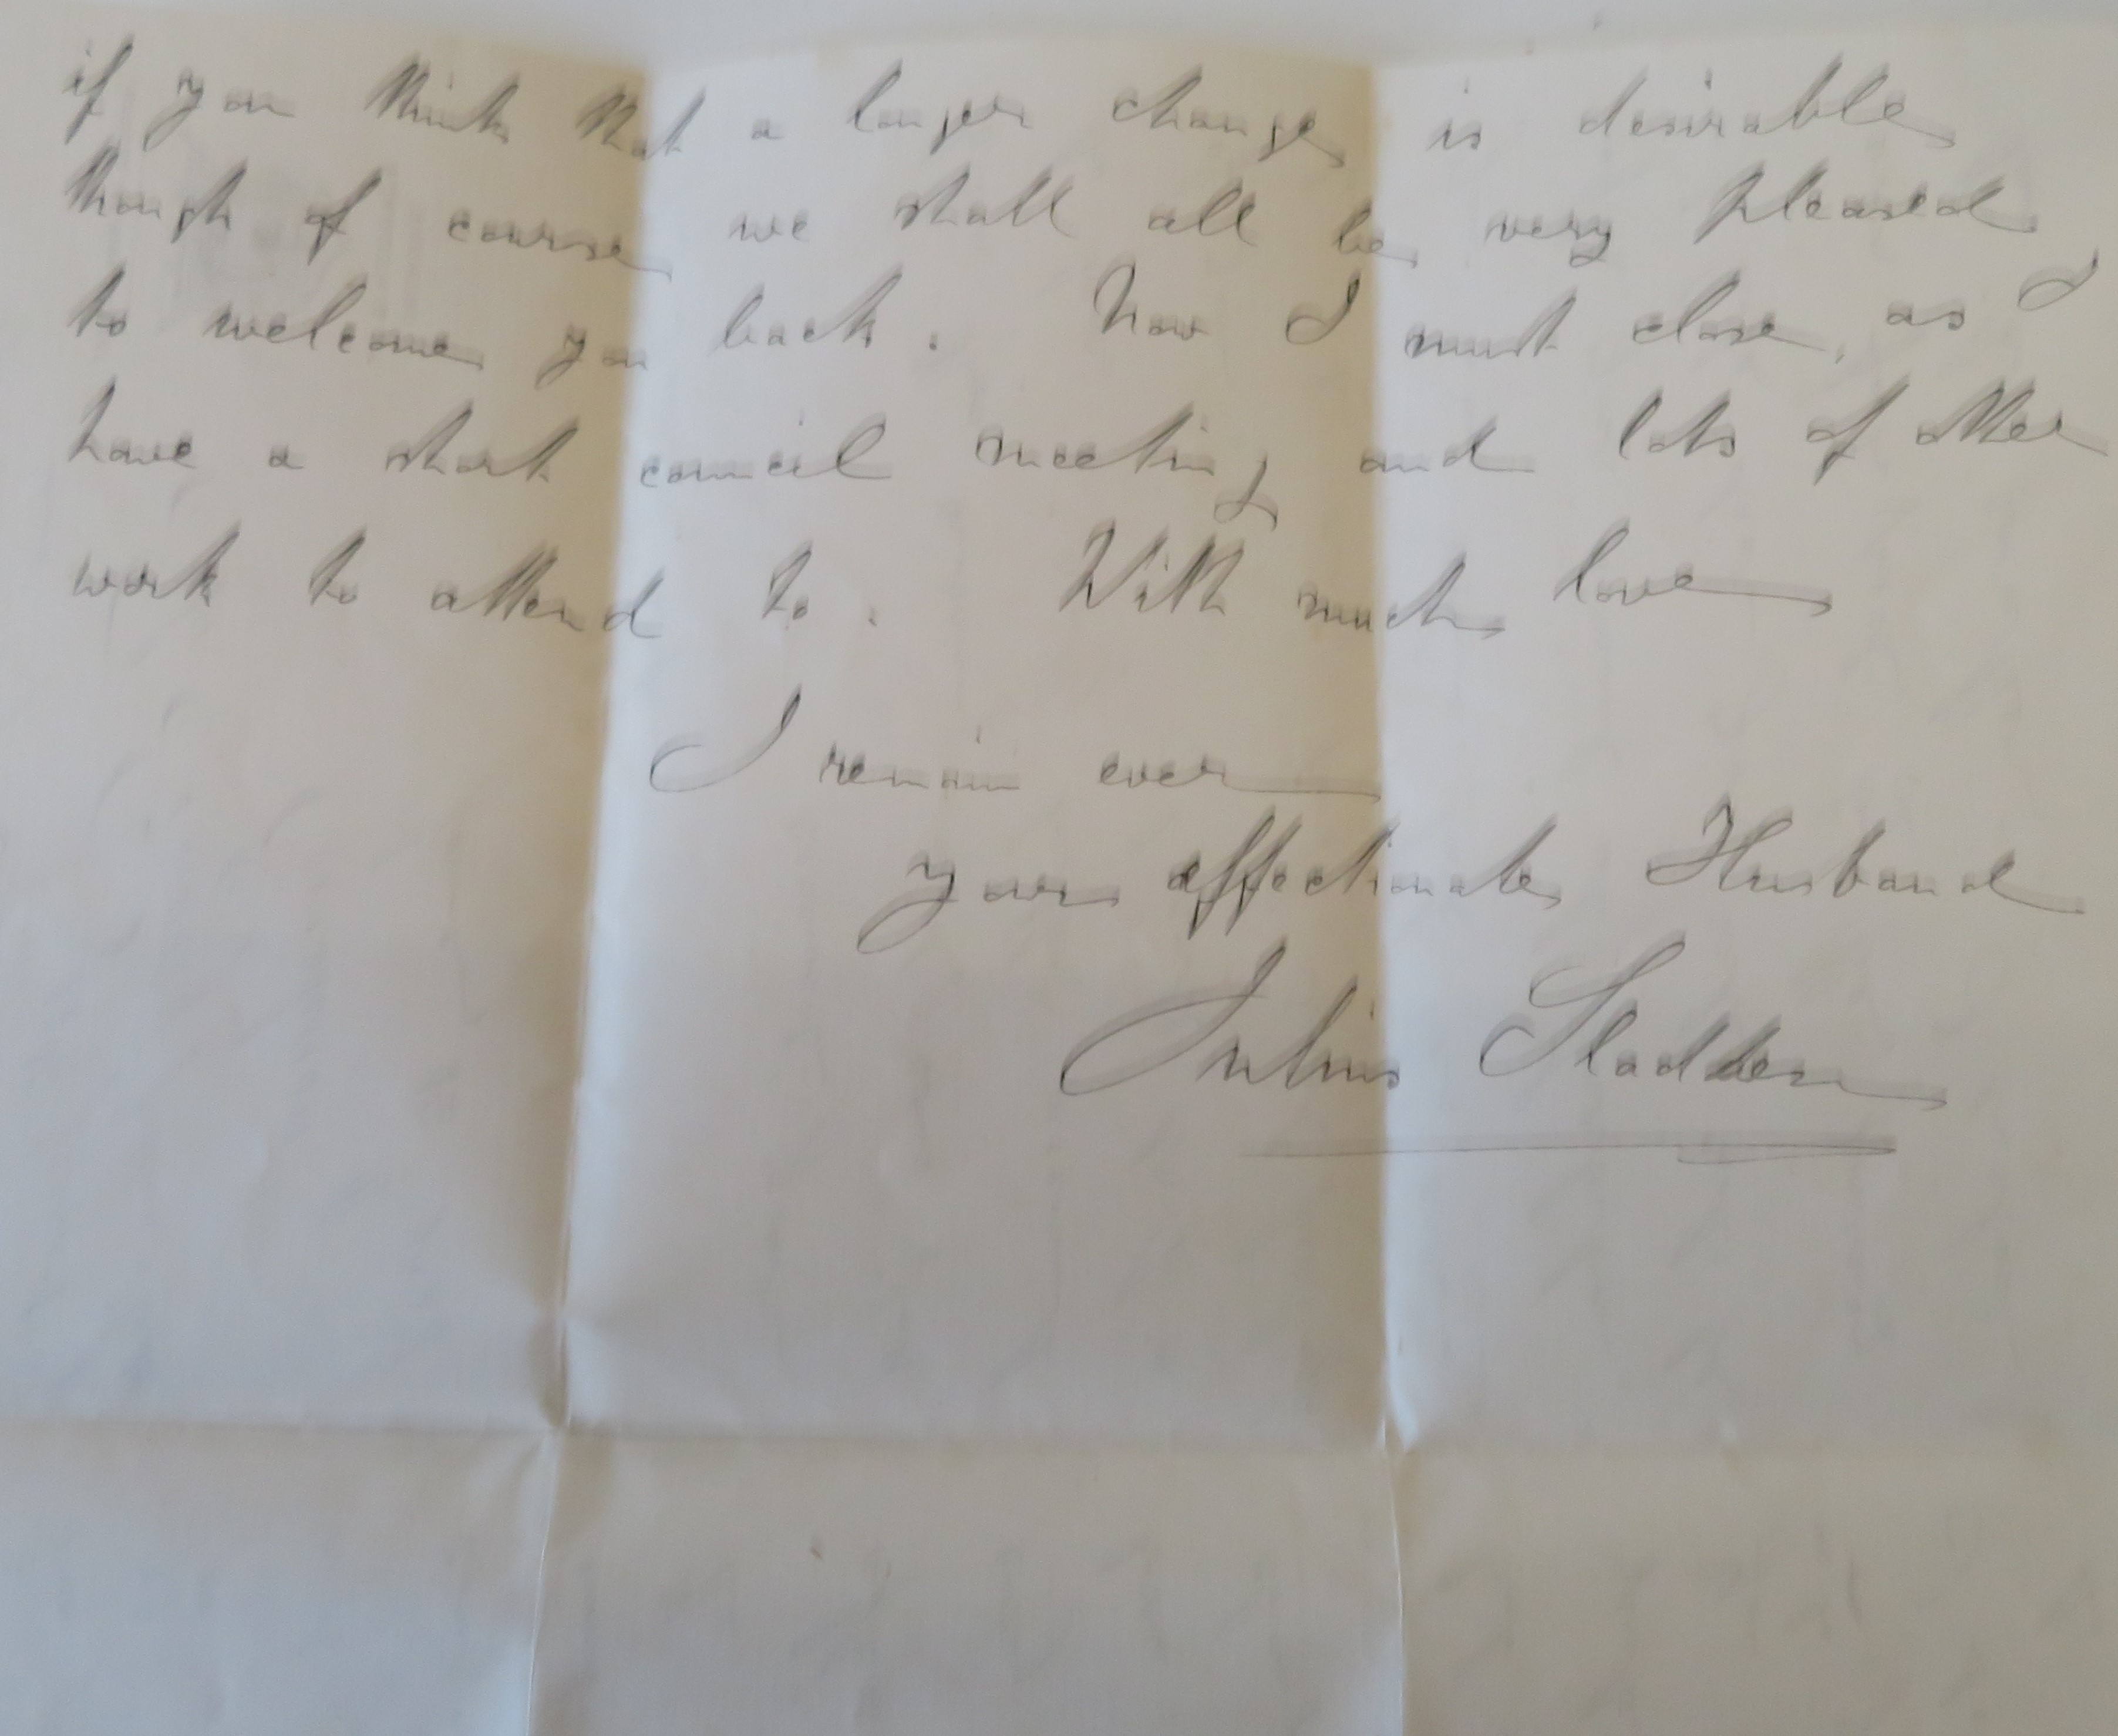 if you think that a longer change is desirable
though of course we shall all be very pleased
to welcome you back. Now I must close, as I
have a short council meeting and lots of other
work to attend to. With much love
I remain ever
your affectionate Husband
Julius Sladden